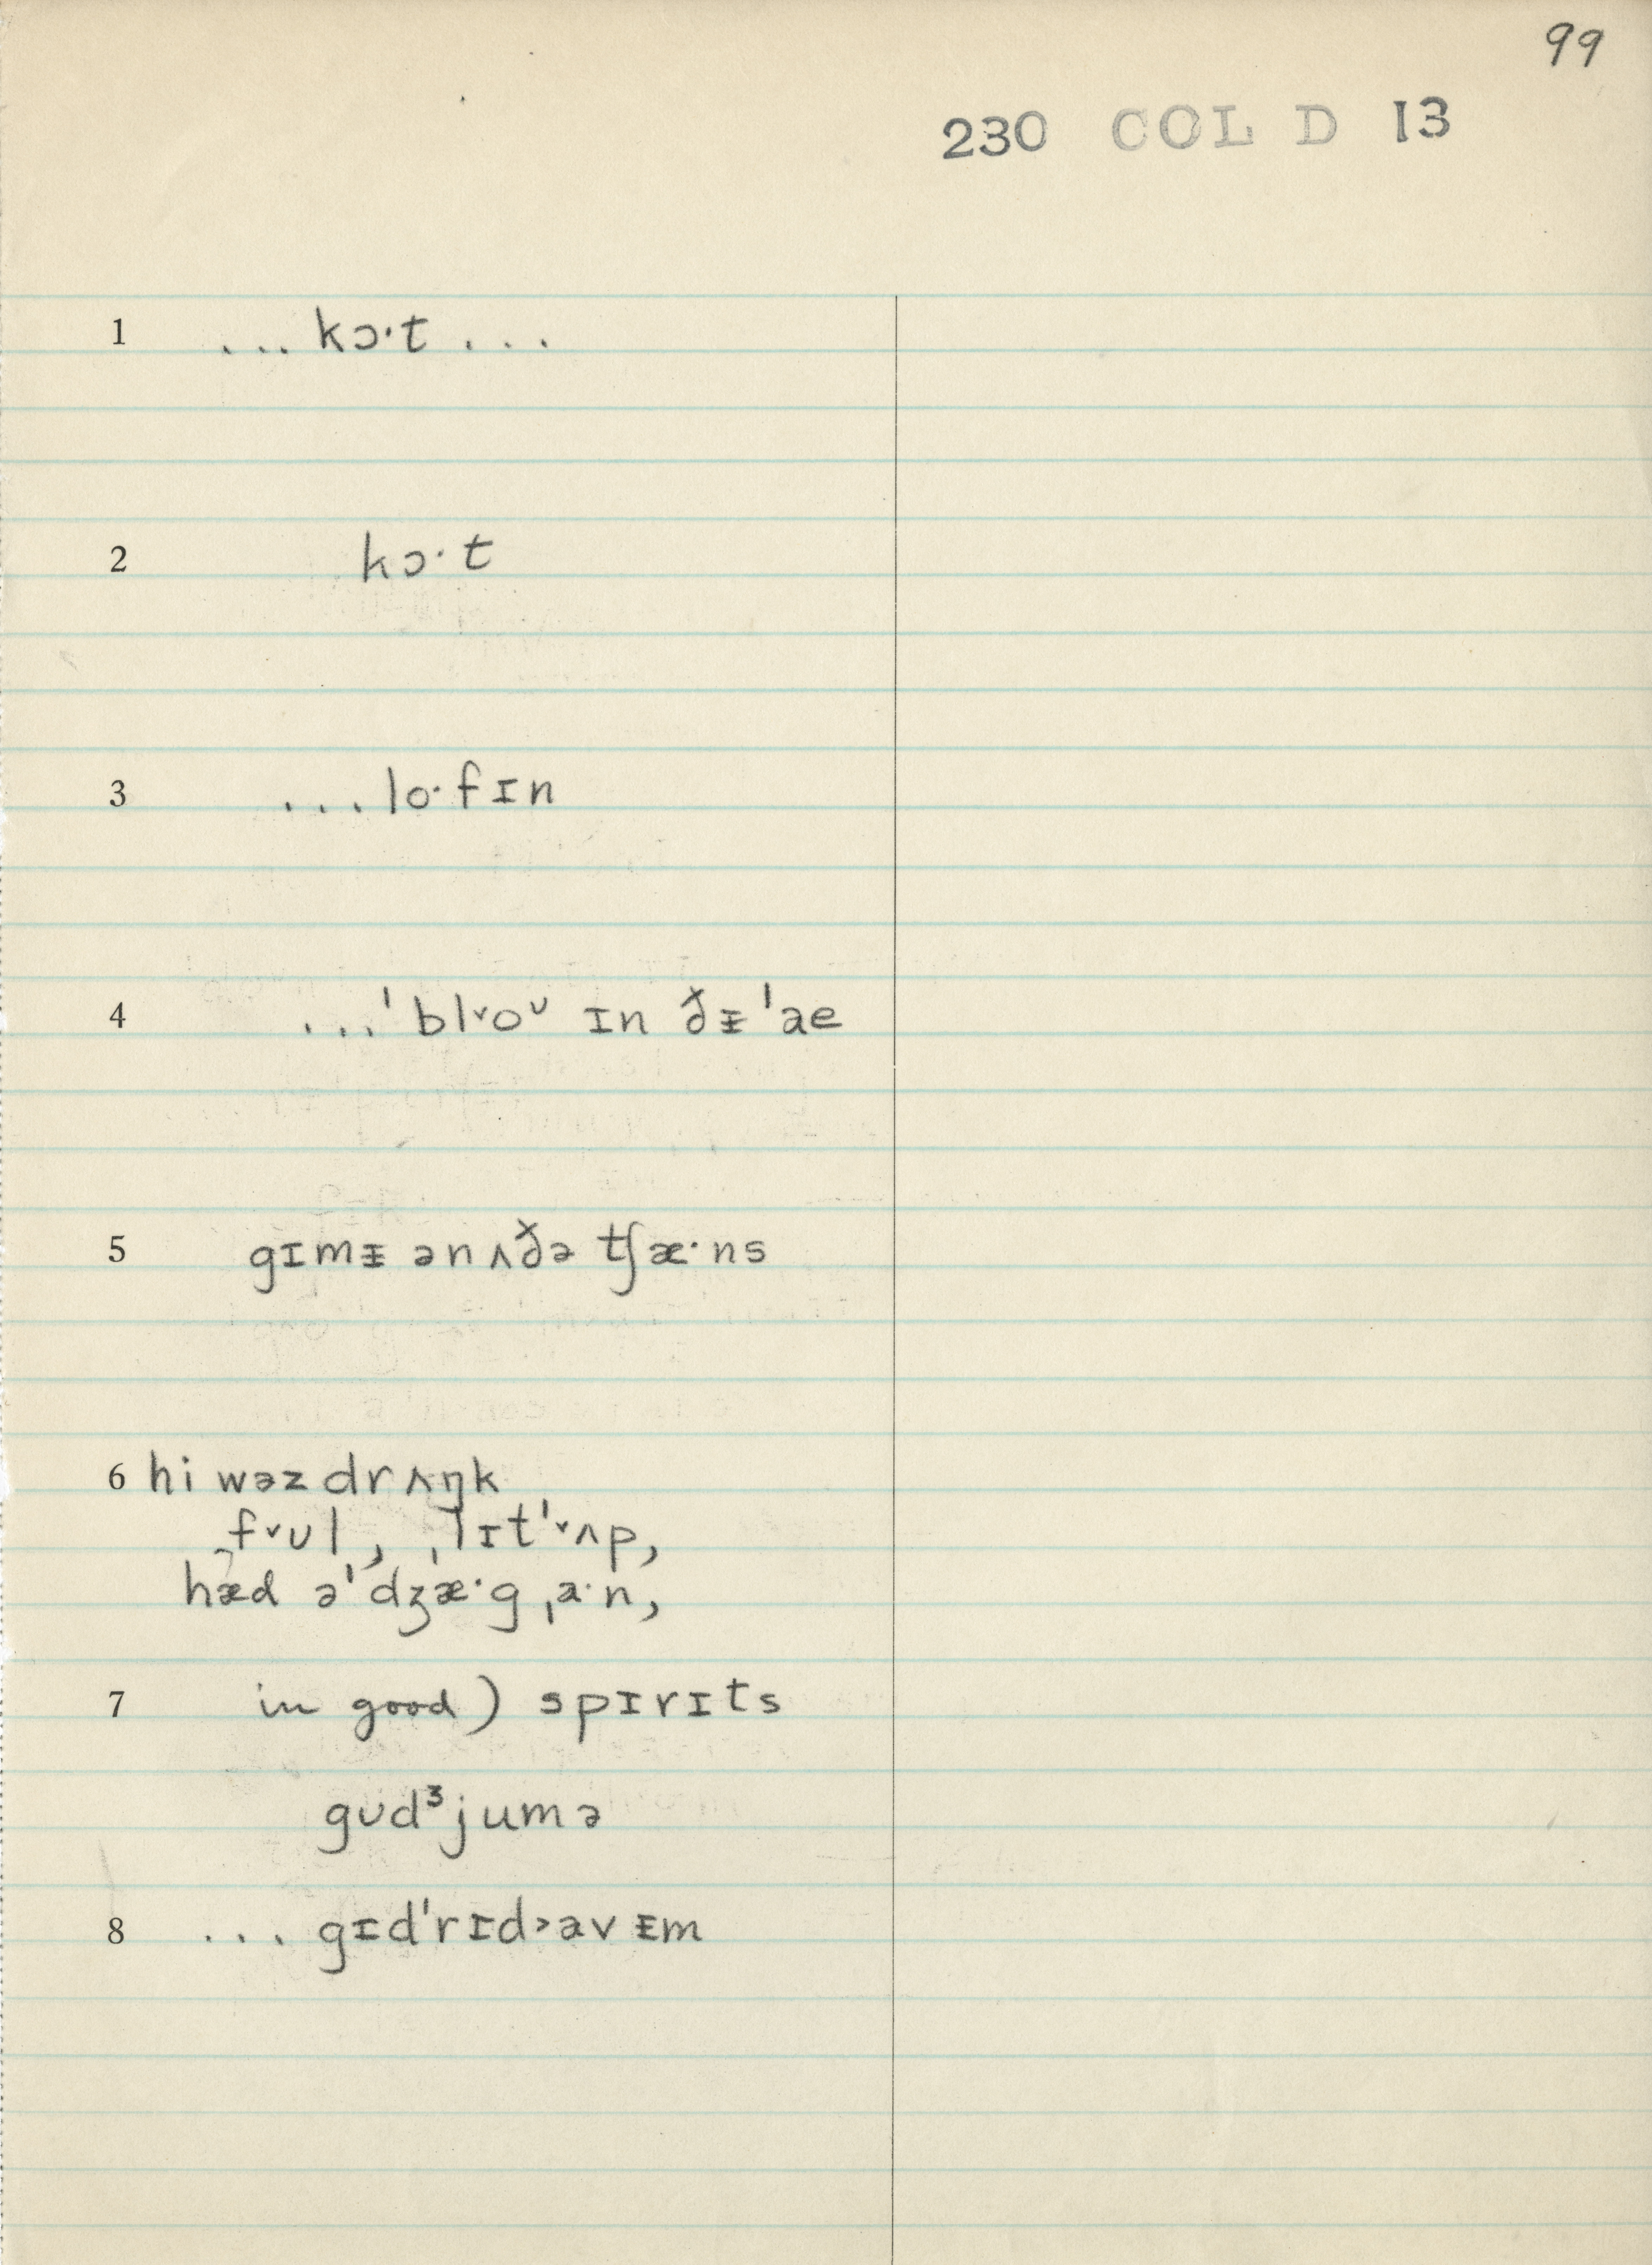 99
230 COL D 13
1 ... kɔ·t ...
2 kɔ·t
3 ... lo·fɪn
4 ...ˈblᵛoᶸ ɪn ðᵻ ˈae
5 gɪmᵻ ənʌðə tʃæ·ns
6 hi wəz drʌŋk
fᵛʊl, ˌlɪtˈᵛʌp,
hæd əˈdʒæ·g ˌa·n,
7 in good) spɪrɪts
gʊdᶾjumə
8 ... gɪdˈrɪd˃av ᵻm